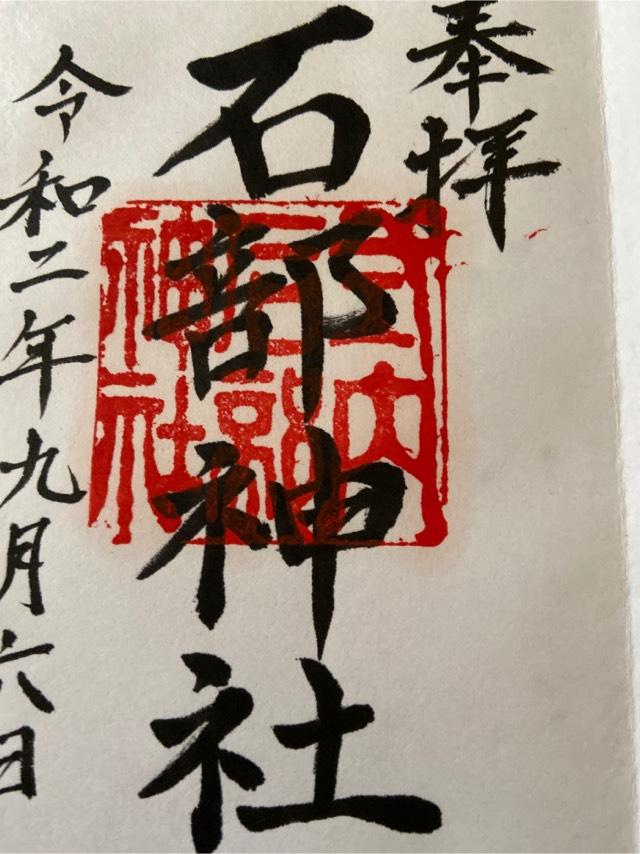 奉拝
石部神社
令和二年九月六日
式内
石部
神社